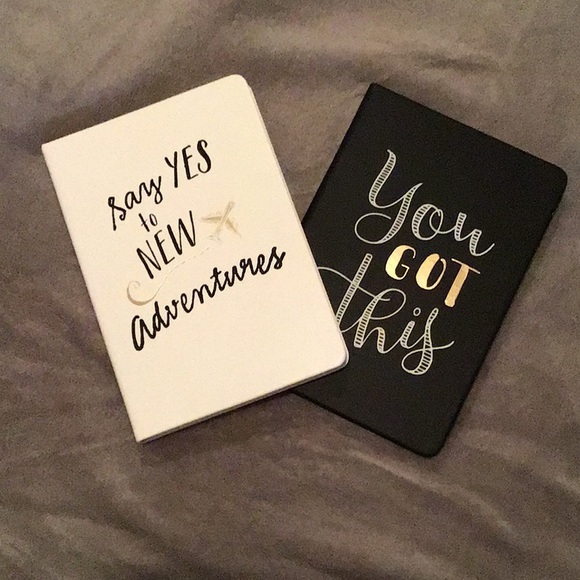 Say YES
to
NEW
Adventures
You
GOT
this